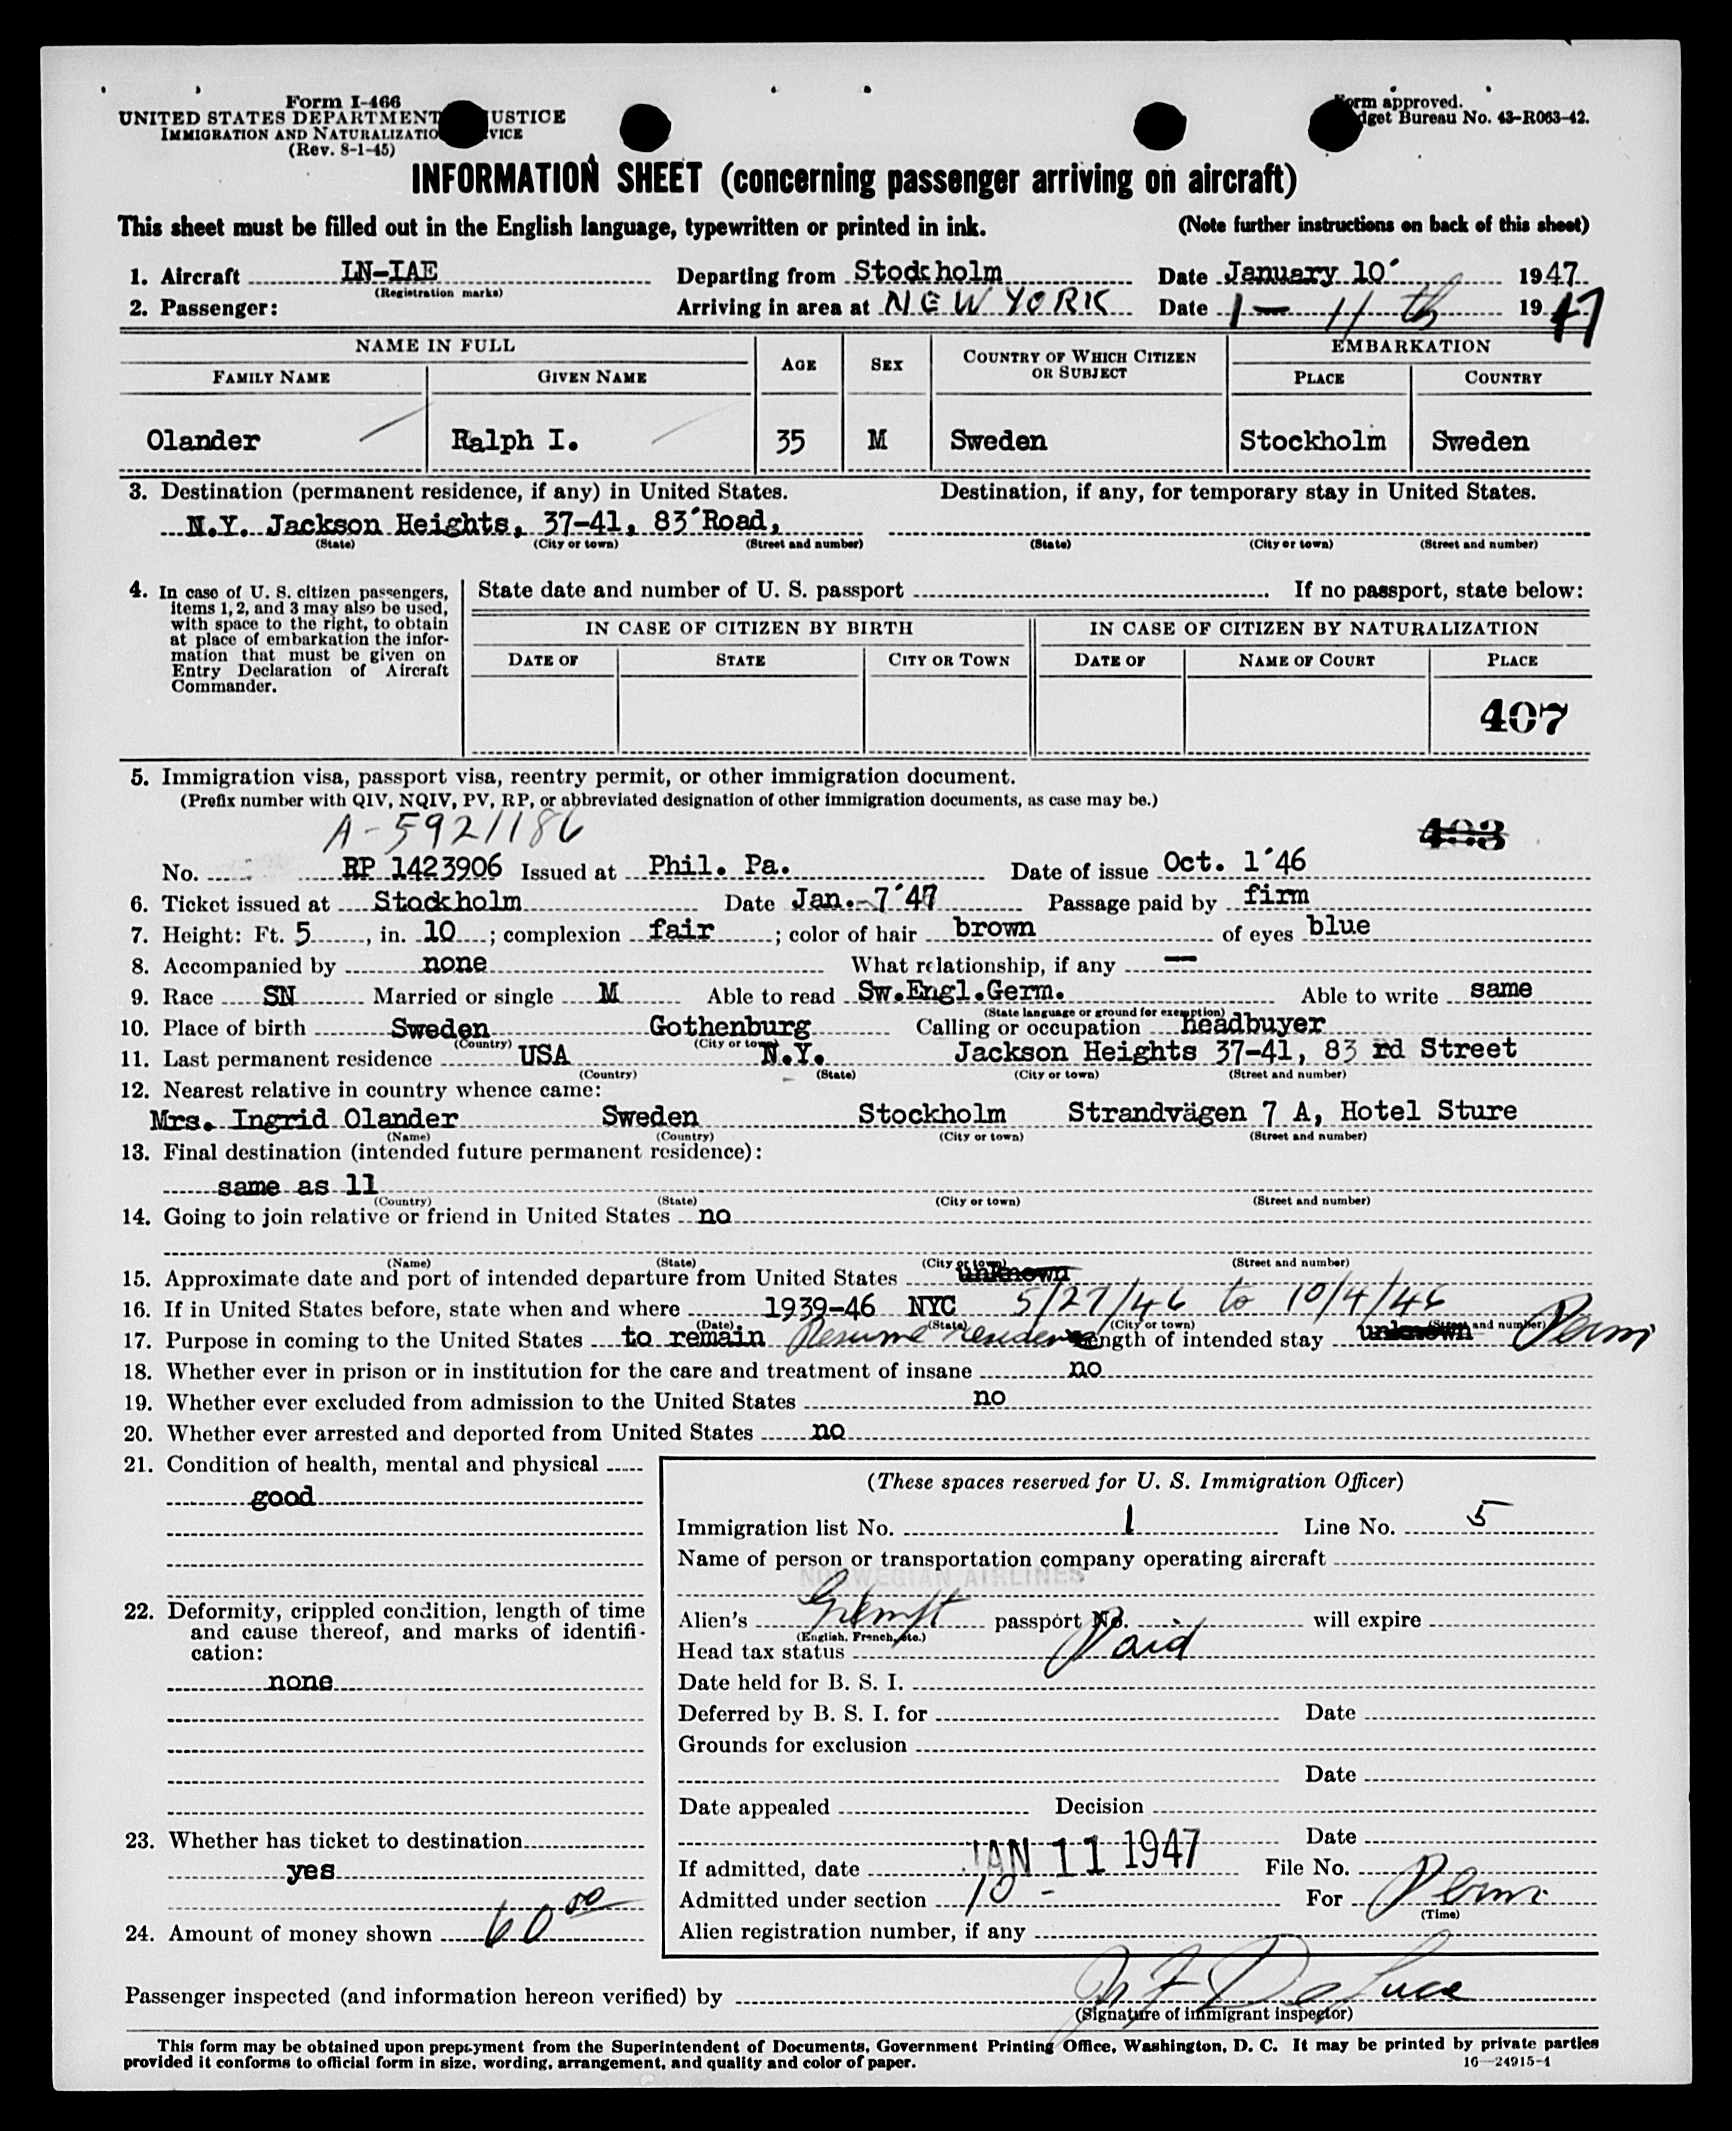 Form I-466
UNITED STATES DEPARTMENT JUSTICE
IMMIGRATION AND NATURALIZATIO VICE
(Rev. 8-1-45)
Form approved.
dget Bureau No. 43-R063-42.
INFORMATION SHEET (concerning passenger arriving on aircraft)
This sheet must be filled out in the English language, typewritten or printed in ink. (Note further instructions on back of this sheet)
1. Aircraft LN-IAE Departing from Stockholm Date January 10' 1947
(Registration marks)
2. Passenger: Arriving in area at NEW YORK Date 1-11th 1947
NAME IN FULL AGE SEX COUNTRY OF WHICH CITIZEN OR SUBJECT EMBARKATION
FAMILY NAME GIVEN NAME PLACE COUNTRY
Olander Ralph I. 35 M Sweden Stockholm Sweden
3. Destination (permanent residence, if any) in United States. Destination, if any, for temporary stay in United States.
N.Y. Jackson Heights, 37-41, 83'Road,
(State) (City or town) (Street and number) (State) (City or town) (Street and number)
4. In case of U. S. citizen passengers, items 1, 2, and 3 may also be used, with space to the right, to obtain at place of embarkation the infor-
mation that must be given on Entry Declaration of Aircraft Commander.
State date and number of U. S. passport If no passport, state below:
IN CASE OF CITIZEN BY BIRTH IN CASE OF CITIZEN BY NATURALIZATION
DATE OF STATE CITY OR TOWN DATE OF NAME OF COURT PLACE
407
5. Immigration visa, passport visa, reentry permit, or other immigration document.
(Prefix number with QIV, NQIV, PV, RP, or abbreviated designation of other immigration documents, as case may be.)
A-5921186 403
No. RP 1423906 Issued at Phil. Pa. Date of issue Oct. 1'46
6. Ticket issued at Stockholm Date Jan. 7'47 Passage paid by firm
7. Height: Ft. 5, in. 10; complexion fair; color of hair brown of eyes blue
8. Accompanied by none What relationship, if any —
9. Race SN Married or single M Able to read Sw.Engl.Germ. Able to write same
(State language or ground for exemption)
10. Place of birth Sweden Gothenburg Calling or occupation headbuyer
(Country) (City or town)
11. Last permanent residence USA N.Y. Jackson Heights 37-41, 83 rd Street
(Country) (State) (City or town) (Street and number)
12. Nearest relative in country whence came:
Mrs. Ingrid Olander Sweden Stockholm Strandvägen 7 A, Hotel Sture
(Name) (Country) (City or town) (Street and number)
13. Final destination (intended future permanent residence):
same as 11
(Country) (State) (City or town) (Street and number)
14. Going to join relative or friend in United States no
(Name) (State) (City or town) (Street and number)
15. Approximate date and port of intended departure from United States unknown
16. If in United States before, state when and where 1939-46 NYC 5/27/46 to 10/4/46
(Date) (State) (City or town) (Street and number)
17. Purpose in coming to the United States to remain Resume residence Length of intended stay unknown Perm
18. Whether ever in prison or in institution for the care and treatment of insane no
19. Whether ever excluded from admission to the United States no
20. Whether ever arrested and deported from United States no
21. Condition of health, mental and physical
good
22. Deformity, crippled condition, length of time and cause thereof, and marks of identifi-
cation:
none
23. Whether has ticket to destination
yes
24. Amount of money shown 60 00
(These spaces reserved for U. S. Immigration Officer)
Immigration list No. 1 Line No. 5
Name of person or transportation company operating aircraft
NORWEGIAN AIRLINES
Alien's passport No. will expire
(English, French, etc.)
Head tax status Paid
Date held for B. S. I.
Deferred by B. S. I. for Date
Grounds for exclusion
Date
Date appealed Decision
Date
If admitted, date JAN 11 1947 File No.
Admitted under section 10 - For Perm
(Time)
Alien registration number, if any
Passenger inspected (and information hereon verified) by
(Signature of immigrant inspector)
This form may be obtained upon prepayment from the Superintendent of Documents, Government Printing Office, Washington, D. C. It may be printed by private parties
provided it conforms to official form in size, wording, arrangement, and quality and color of paper. 16—24915-1